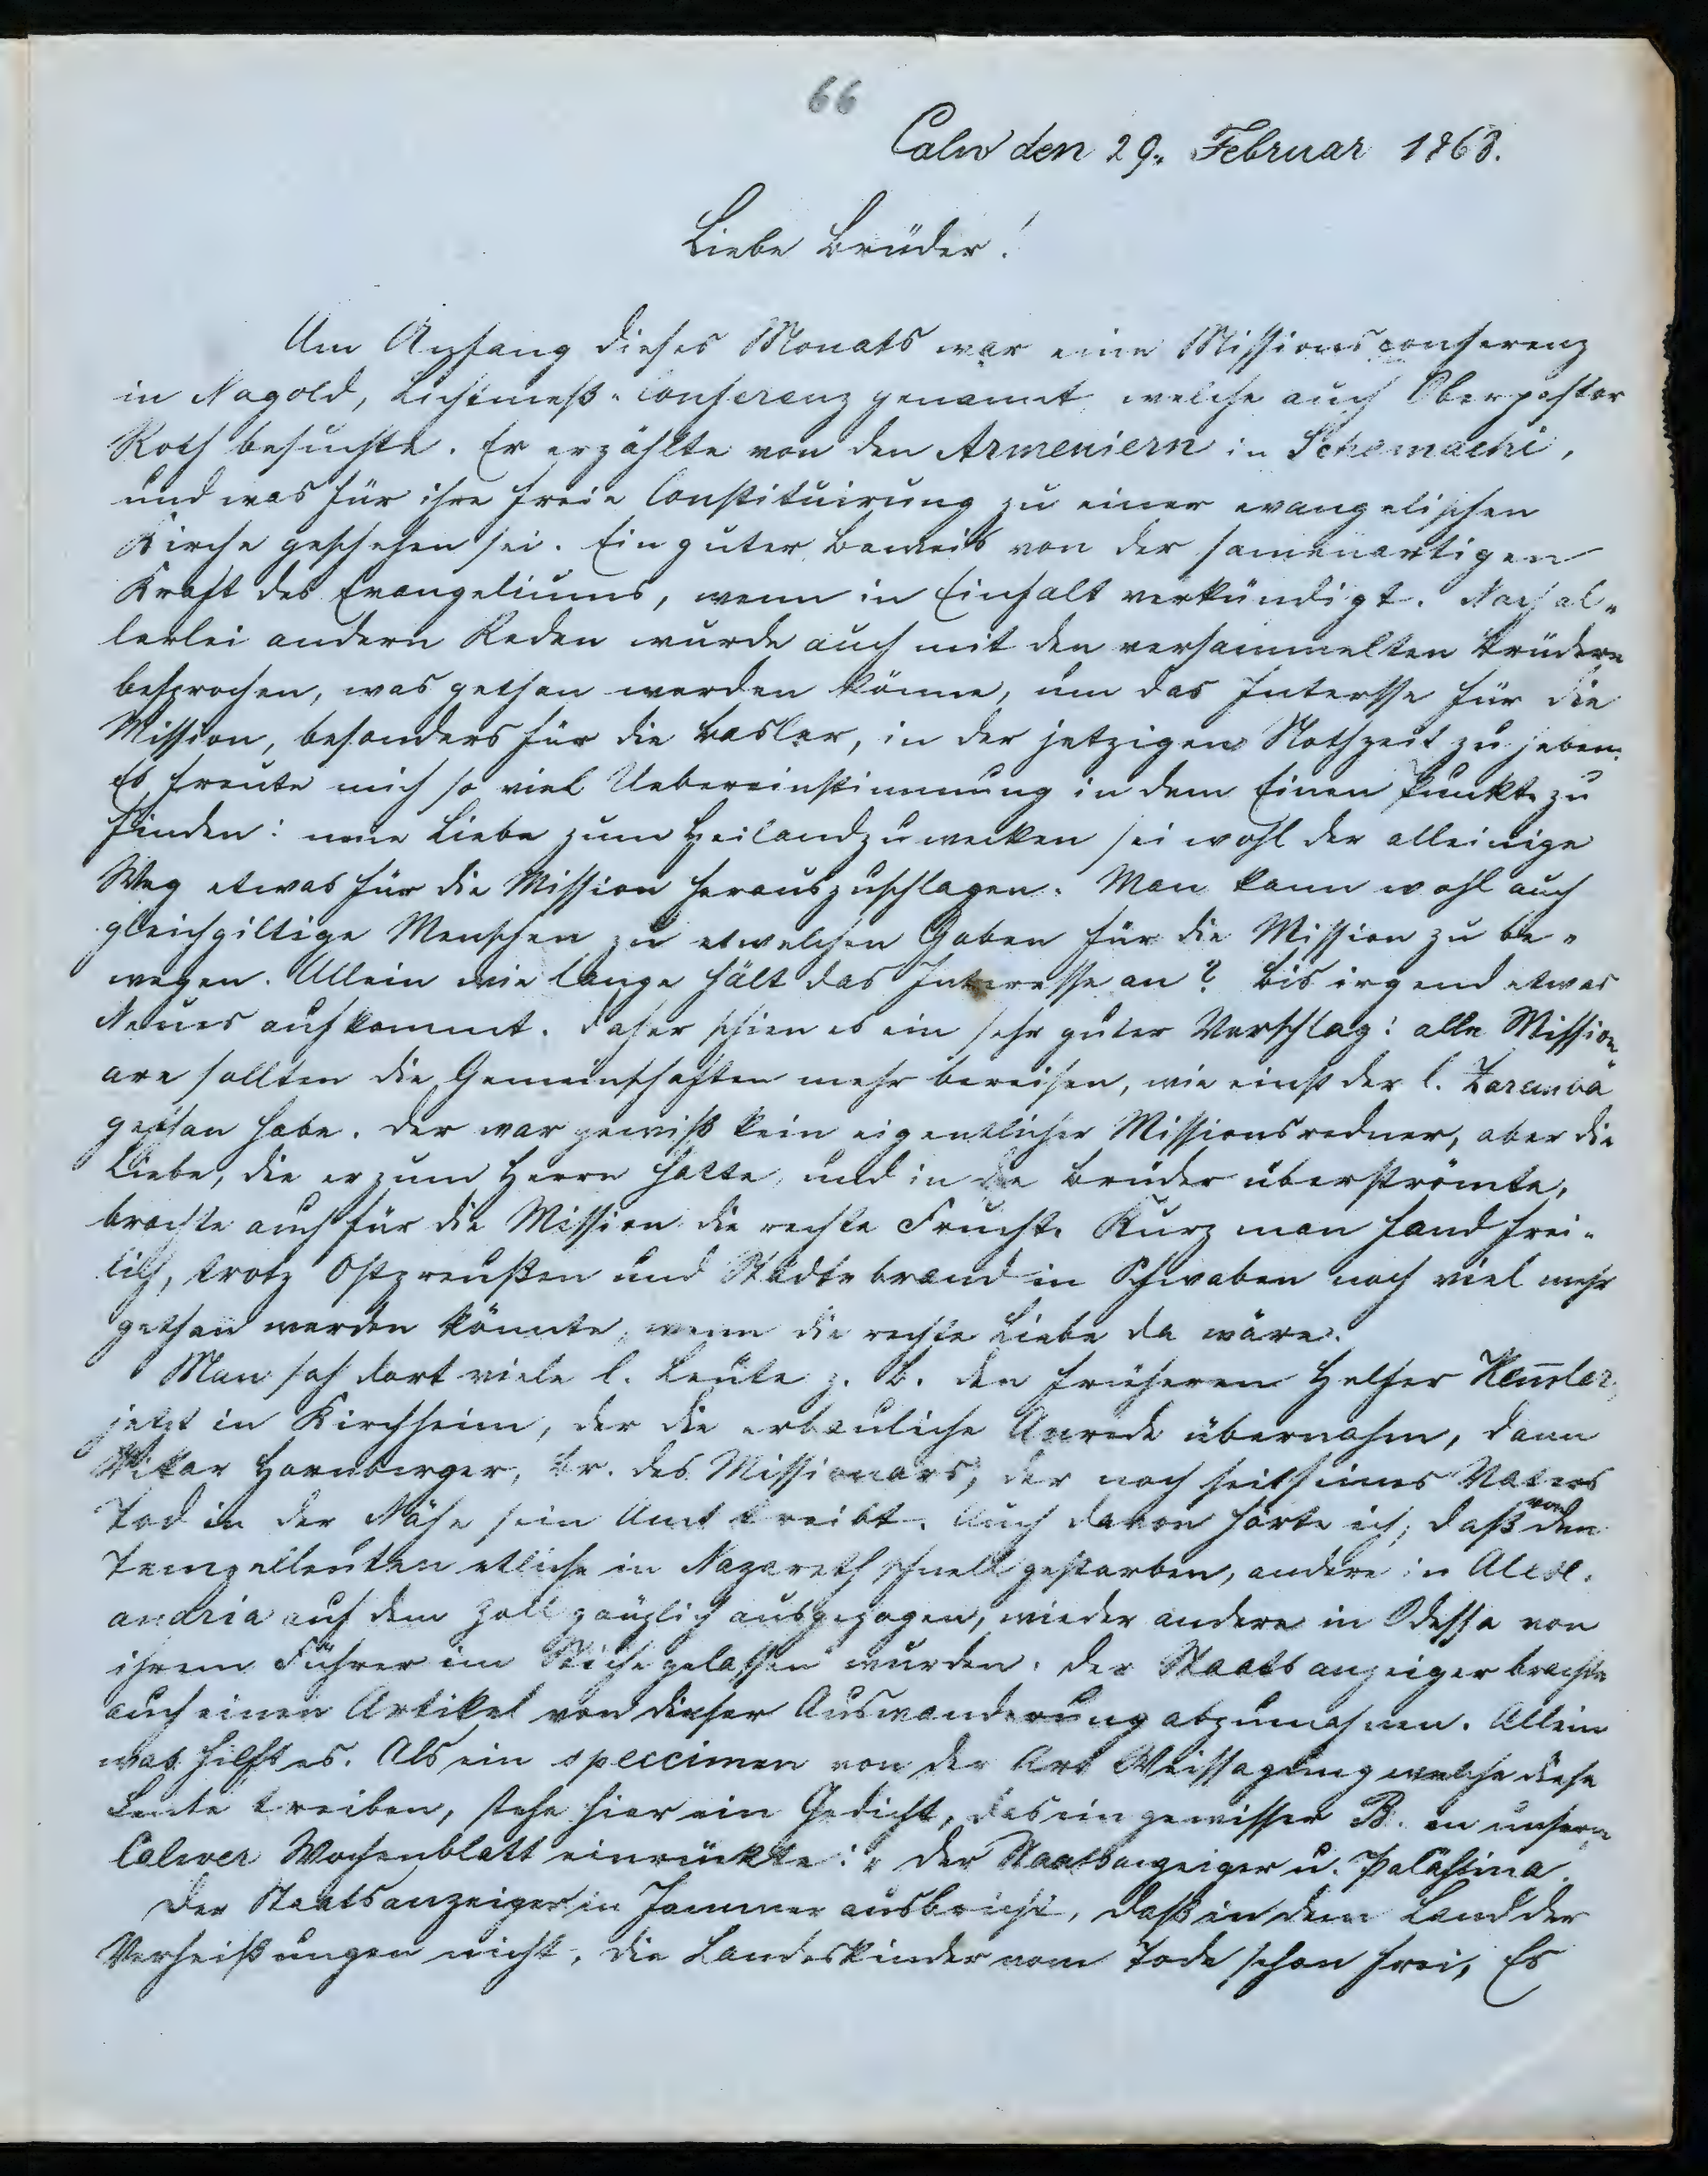 66
Calw den 29. Februar 1868.
Liebe Brüder!
Am Anfang dieses Monats war eine Missionsconferenz
in Nagold, Lichtmeß-Conferenz genannt, welche auch Oberpastor
Roth besuchte. Er erzählte von den Armeniern in Schemachi,
und was für ihre freie Constituirung zu einer evangelischen
Kirche geschehen sei. Ein guter Beweis von der samenartigen
Kraft des Evangeliums, wenn in Einfalt verkündigt. Nach al-
lerlei andern Reden wurde auch mit den versammelten Brüdern
besprochen, was gethan werden könne, um das Interesse für die
Mission, besonders für die Basler, in der jetzigen Nothzeit zu heben.
Es freute mich so viel Uebereinstimmung in dem Einen Punkte zu
finden: neue Liebe zum Heiland zu wecken sei wohl der alleinige
Weg etwas für die Mission herauszuschlagen. Man kann wohl auch
gleichgiltige Menschen zu etwelchen Gaben für die Mission zu be-
wegen. Allein wie lange hält das Interesse an? Bis irgend etwas
Neues aufkommt. Daher schien es ein sehr guter Vorschlag: alle Mission-
are sollten die Gemeinschaften mehr bereisen, wie einst der l. Zaremba
gethan habe. Der war gewiß kein eigentlicher Missionsredner, aber die
Liebe, die er zum Herrn hatte, und in die Brüder überströmte,
brachte auch für die Mission die rechte Frucht. Kurz man fand frei-
lich, trotz Ostpreußen und Städtebrand in Schwaben noch viel mehr
gethan werden könnte, wenn die rechte Liebe da wäre.
Man sah dort viele l. Leute z. B. den früheren Helfer Kemler,
jetzt in Kirchheim, der die erbauliche Anrede übernahm, dann
Vikar Hornberger, Br. des Missionars, der noch seit seines Vaters
Tod in der Nähe sein Amt treibt. Auch davon hörte ich, daß von den
Tempelleuten etliche in Nazareth schnell gestorben, andere in Alex-
andria auf dem Zoll gänzlich ausgezogen, wieder andere in Odessa von
ihrem Führer im Stiche gelassen wurden. Der Staatsanzeiger brachte
auch einen Artikel von dieser Auswanderung abzumahnen. Allein
was hilft es. Als ein speccimen von der Art Weissagung welche diese
Leute treiben, stehe hier ein Gedicht, das ein gewisser B. in unserm
Calwer Wochenblatt einrückte: „Der Staatsanzeiger u. Palästina.
Der Staatsanzeiger in Jammer ausbricht, daß in dem Land der
Verheißungen nicht, die Landeskinder vom Tode schon frei, Es